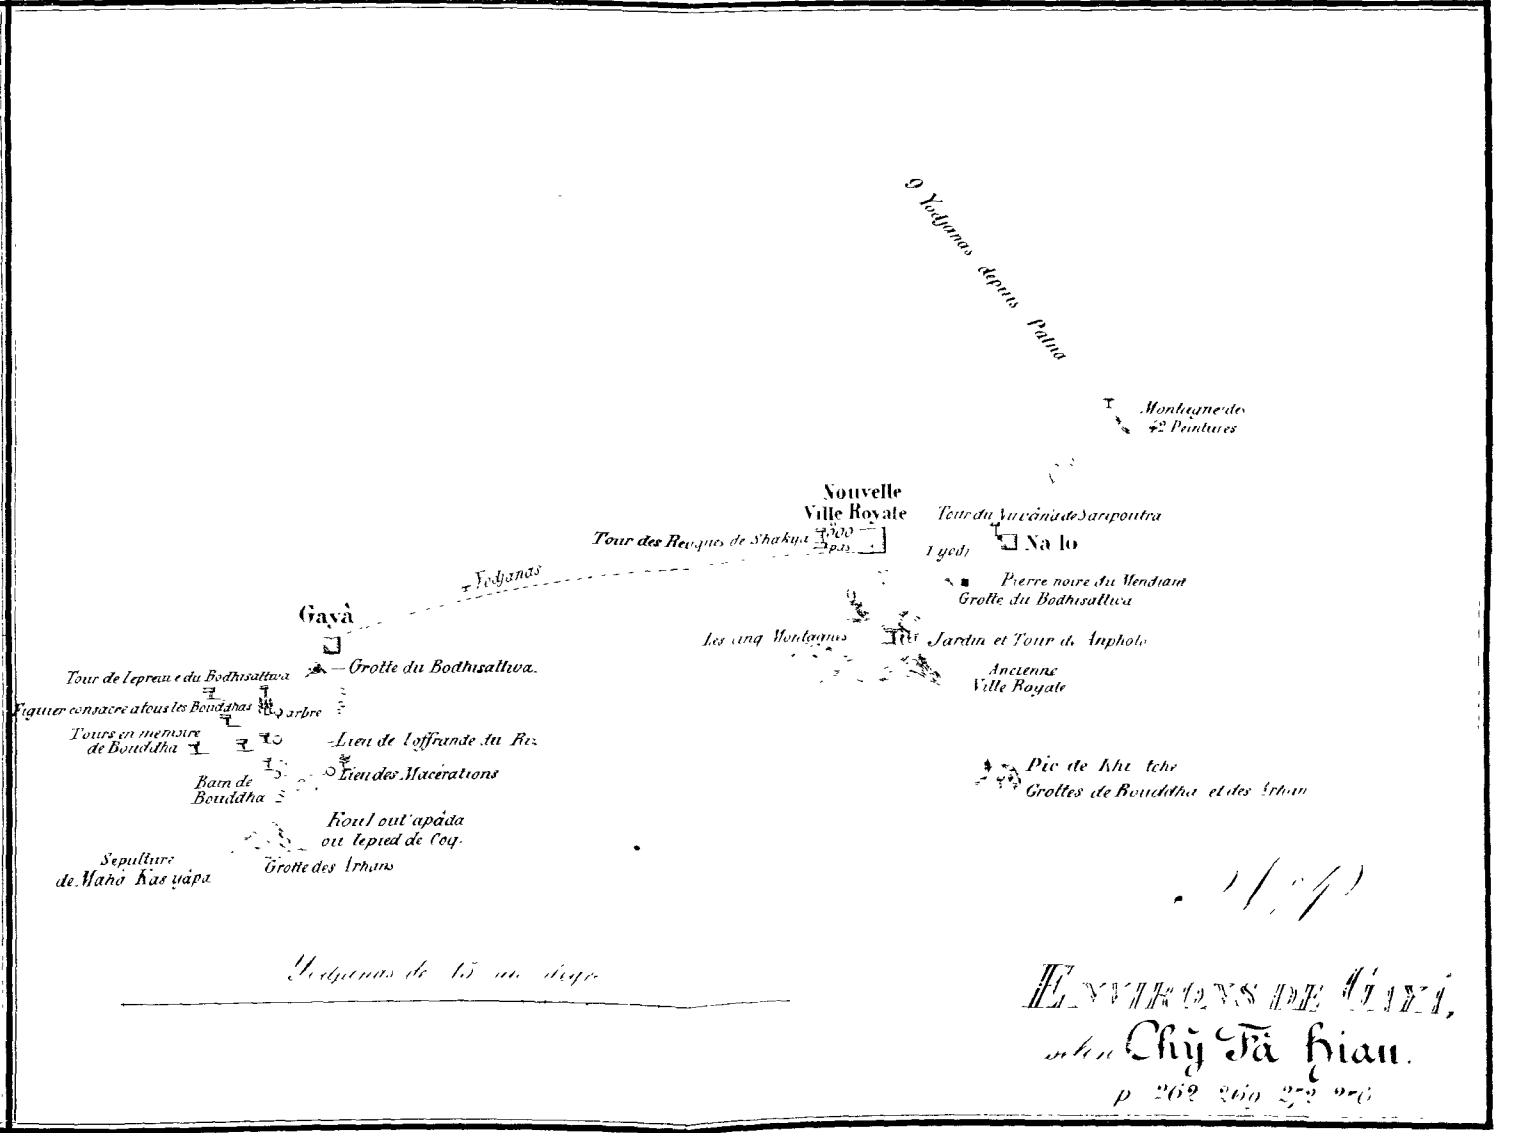 9 Yodjanas depuis Patna
Montagne de
42 Peintures
Nouvelle
Ville Royale
Tour du de Saripoutra
Tour des Reliques de Shakya
300
pas
1 yodj
Na lo
Yodjanas
Pierre noire du Mendiant
Grotte du Bodhisattwa
Gayâ
Les cinq Montagnes
Jardin et Tour de Anpholo
Grotte du Bodhisattwa.
Ancienne
Ville Royale
Tour de lepreuve du Bodhisattwa
Figuier consacre a tous les Bouddhas
arbre
Tours en memoire
de Bouddha
Lieu de l'offrande du Riz
Lieu des Macérations
Bain de
Bouddha
Pic de Khi tche
Grottes de Bouddha et des Arhan
Koul out'apáda
ou le pied de Coq.
Sepulture
de Mahá Kas yápa
Grotte des Arhans
Yodjanas de 15 au degré
ENVIRONS DE GAYÁ,
selon Chỹ Fă Hian.
p 262 269 272 276